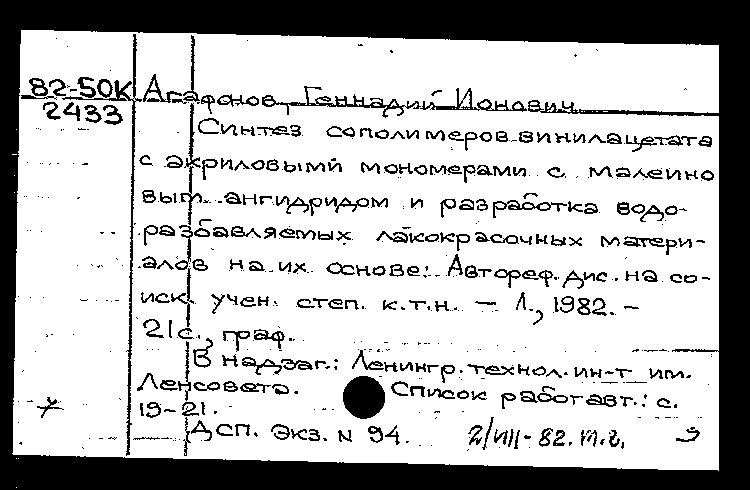 82-50К Агафонов, Геннадий Ионович
2433
Синтез сополимеров винилацетата
с акриловыми мономерами с малеино
вым ангидридом и разработка водо-
разбавляемых лакокрасочных матери-
алов на их основе: Автореф. дис. на со-
иск. учен. степ. к.т.н. — Л., 1982. –
21с., граф.
В надзаг.: Ленингр. технол. ин-т им.
Ленсовета. Список работ авт.: с.
19-21.
ДСП. Экз. N 94. 2/VIII-82.